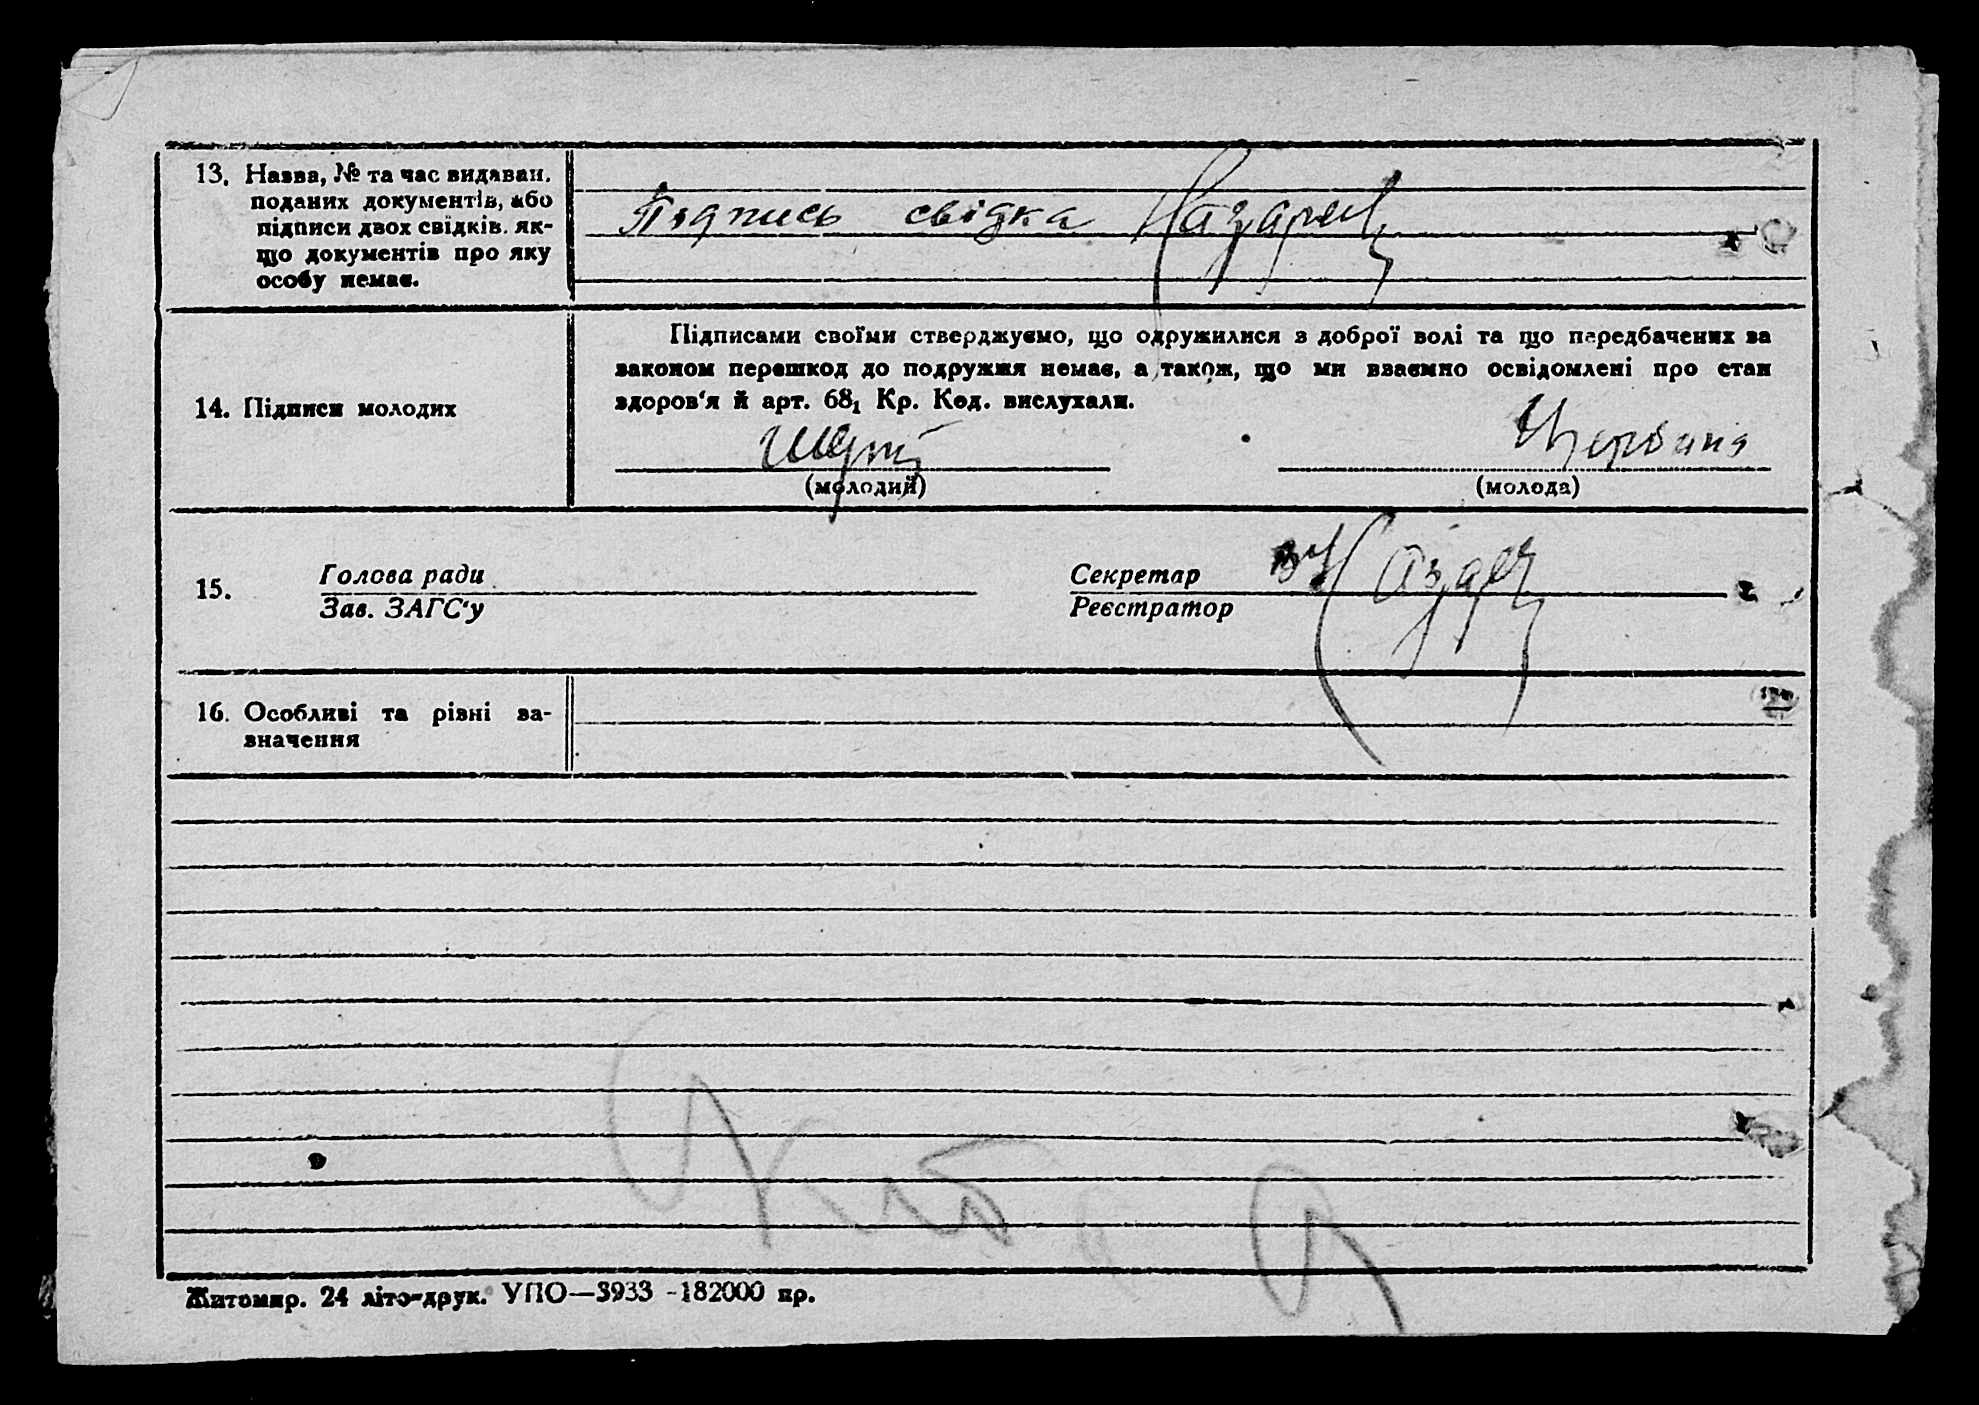 13. Назва, № та час видаван.
поданих документів, або
підписи двох свідків. як-
що документів про яку
особу немає.
Підпись свідка
Підписами своїми стверджуємо, що одружилися з доброї волі та що передбачених за
законом перешкод до подружжя немає, а також, що ми взаємно освідомлені про стан
здоров'я й арт. 68₁ Кр. Код. вислухали.
14. Підписи молодих
(молодий) (молода)
15. Голова ради Секретар
Зав. ЗАГС'у Реєстратор
16. Особливі та рівні за-
значення
Житомир. 24 літо-друк. УПО—3933 -182000 пр.